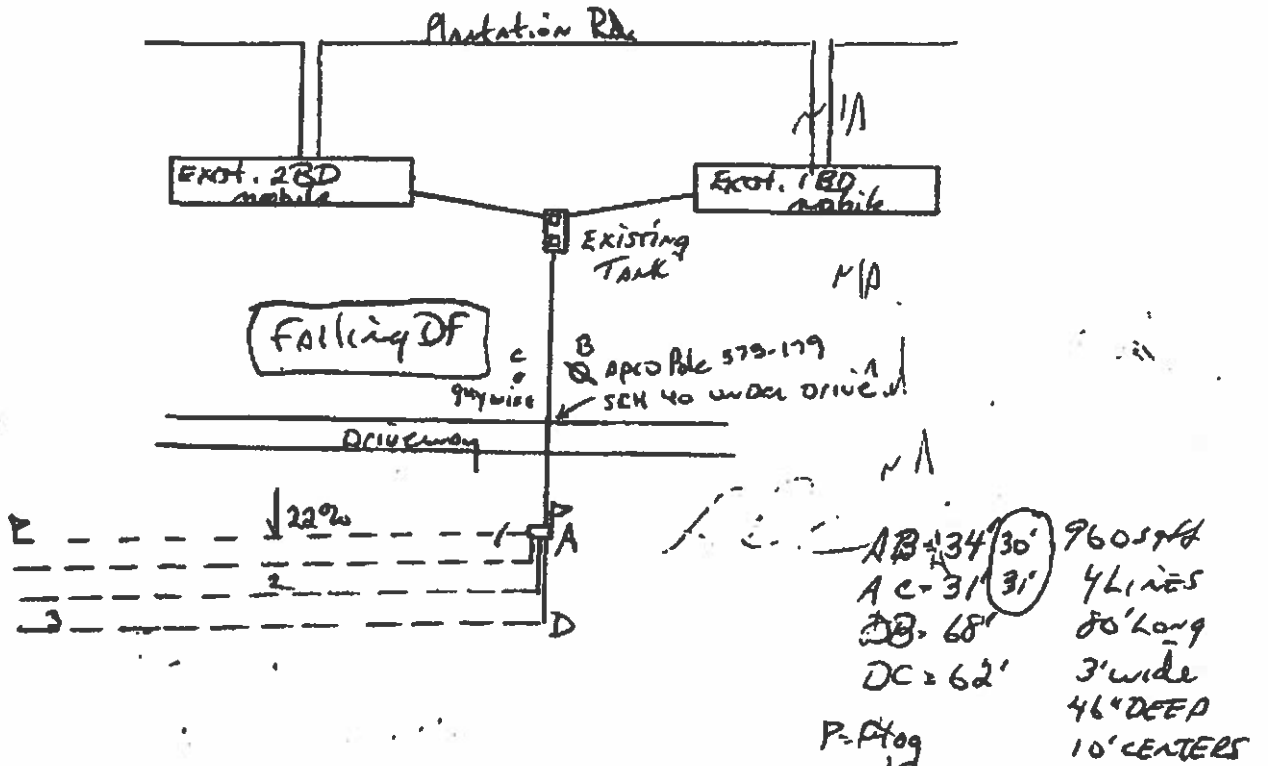 Plantation Rd.
N/A
Exist. 2BD
mobile
Exist. 1 BD
mobile
Existing
Tank
N/A
Failing DF
C
guy wire
B
Apco Pole 373-179
SCH 40 under Drive
Driveway
N
22%
P
P
1
A
2
3
D
AB = 34' 30'
AC = 31' 31'
DB = 68'
DC = 62'
960 sqft
4 Lines
80' Long
3' wide
46" DEEP
10' CENTERS